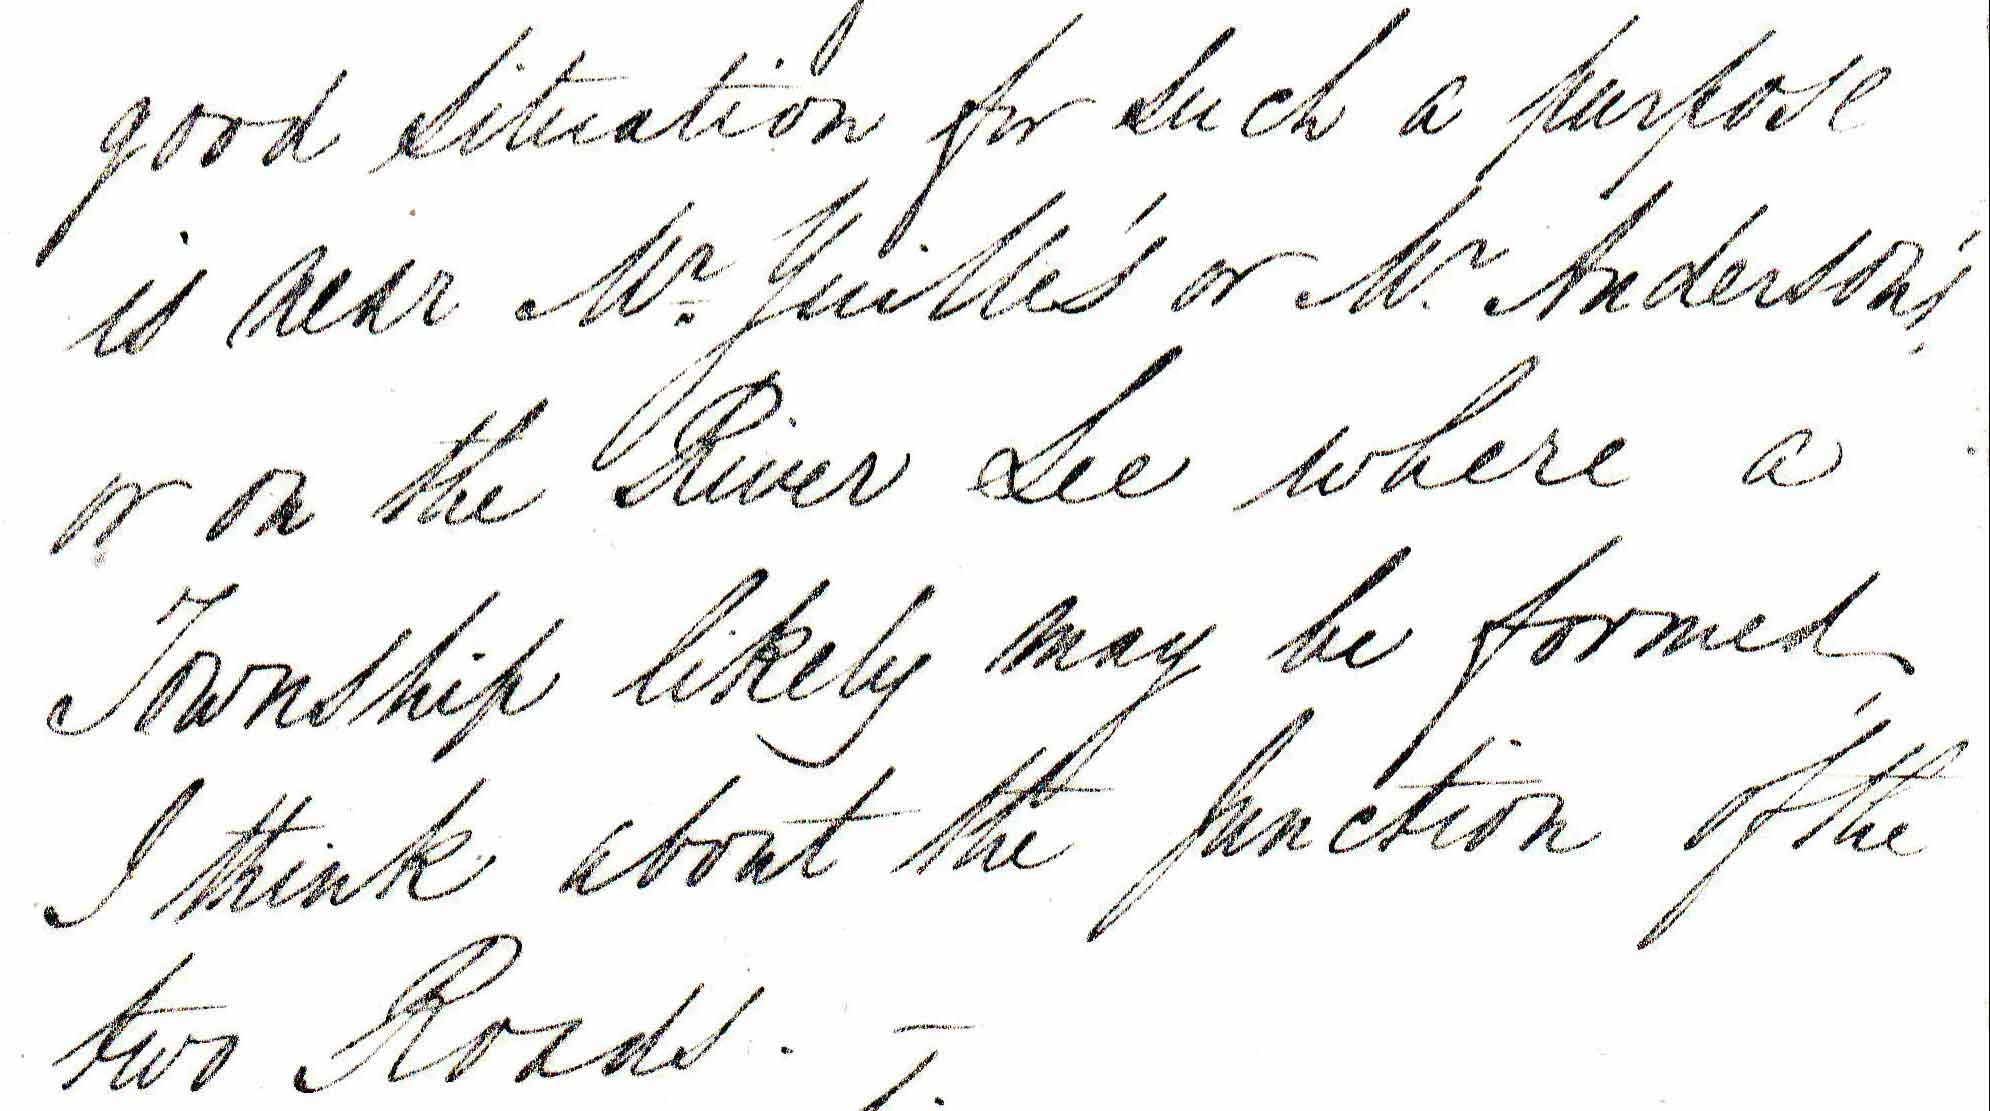 good situation for such a purpose
is near Mr. Yuille's or Mr. Anderson's
or on the River Lee where a
Township likely may be formed
I think about the Junction of the
two Roads.